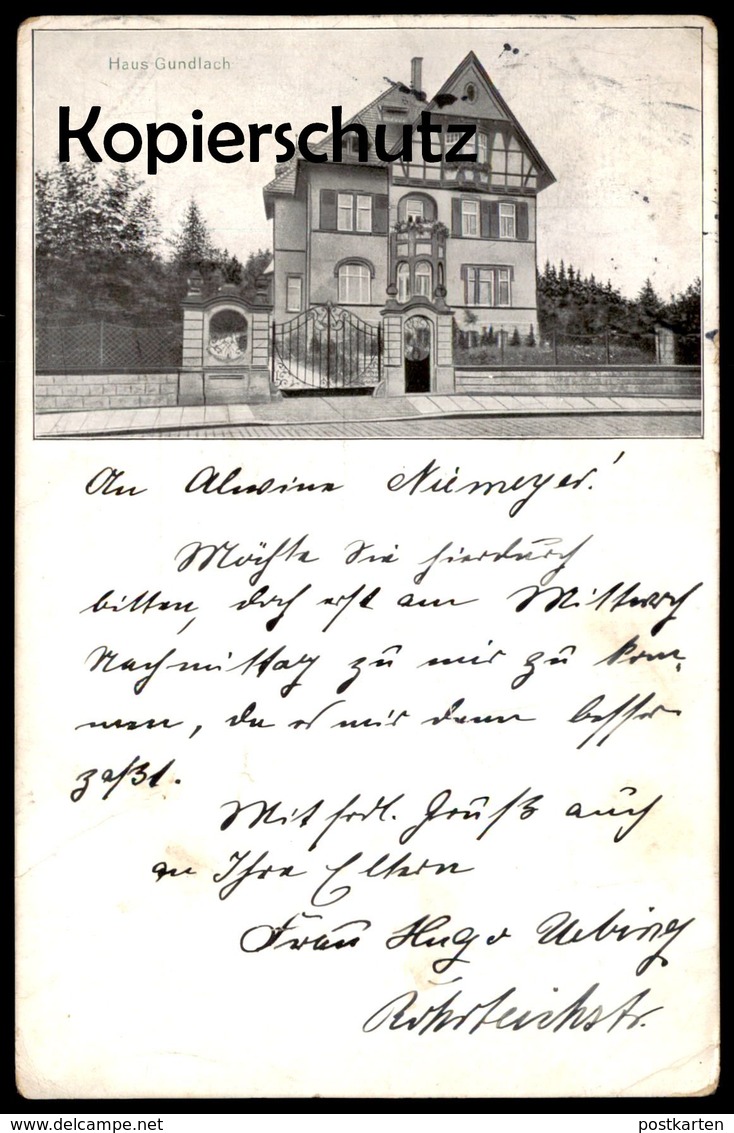 Haus Gundlach
Kopierschutz
An Alwine Niemeyer!
Möchte Sie hierdurch
bitten, doch erst am Mittwoch
Nachmittag zu mir zu kom-
men, da es mir dann besser
paßt.
Mit frdl. Gruß auch
an Ihre Eltern
Frau Hugo
Rohrteichstr.
postkarten
www.delcampe.net